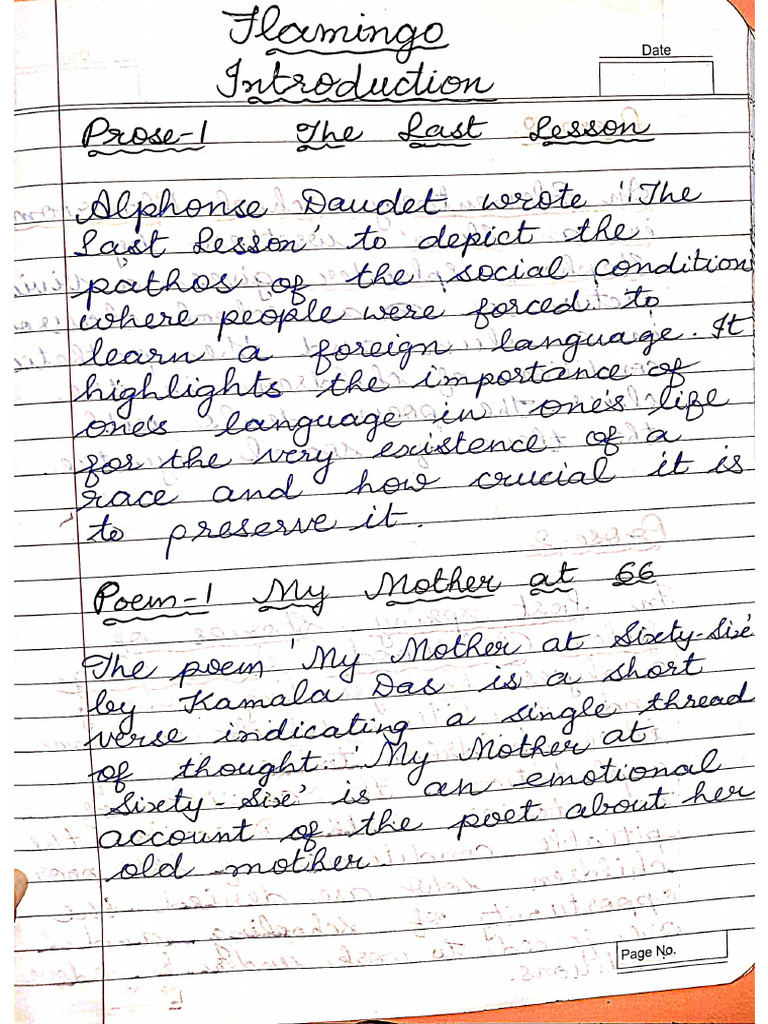 Flamingo
Date
Introduction
Prose-1 The Last Lesson
Alphonse Daudet wrote 'The
Last Lesson' to depict the
pathos of the social condition
where people were forced to
learn a foreign language. It
highlights the importance of
one's language in one's life
for the very existence of a
race and how crucial it is
to preserve it.
Poem-1 My Mother at 66
The poem 'My Mother at Sixty-Six'
by Kamala Das is a short
verse indicating a single thread
of thought. 'My Mother at
Sixty-Six' is an emotional
account of the poet about her
old mother.
Page No.